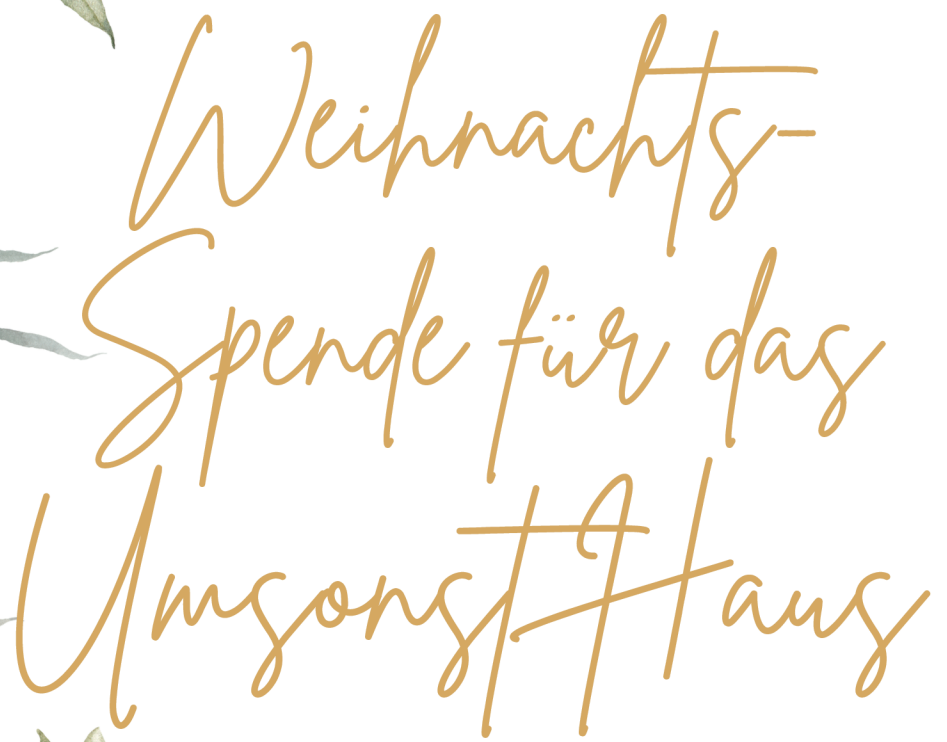 Weihnachts-
Spende für das
UmsonstHaus